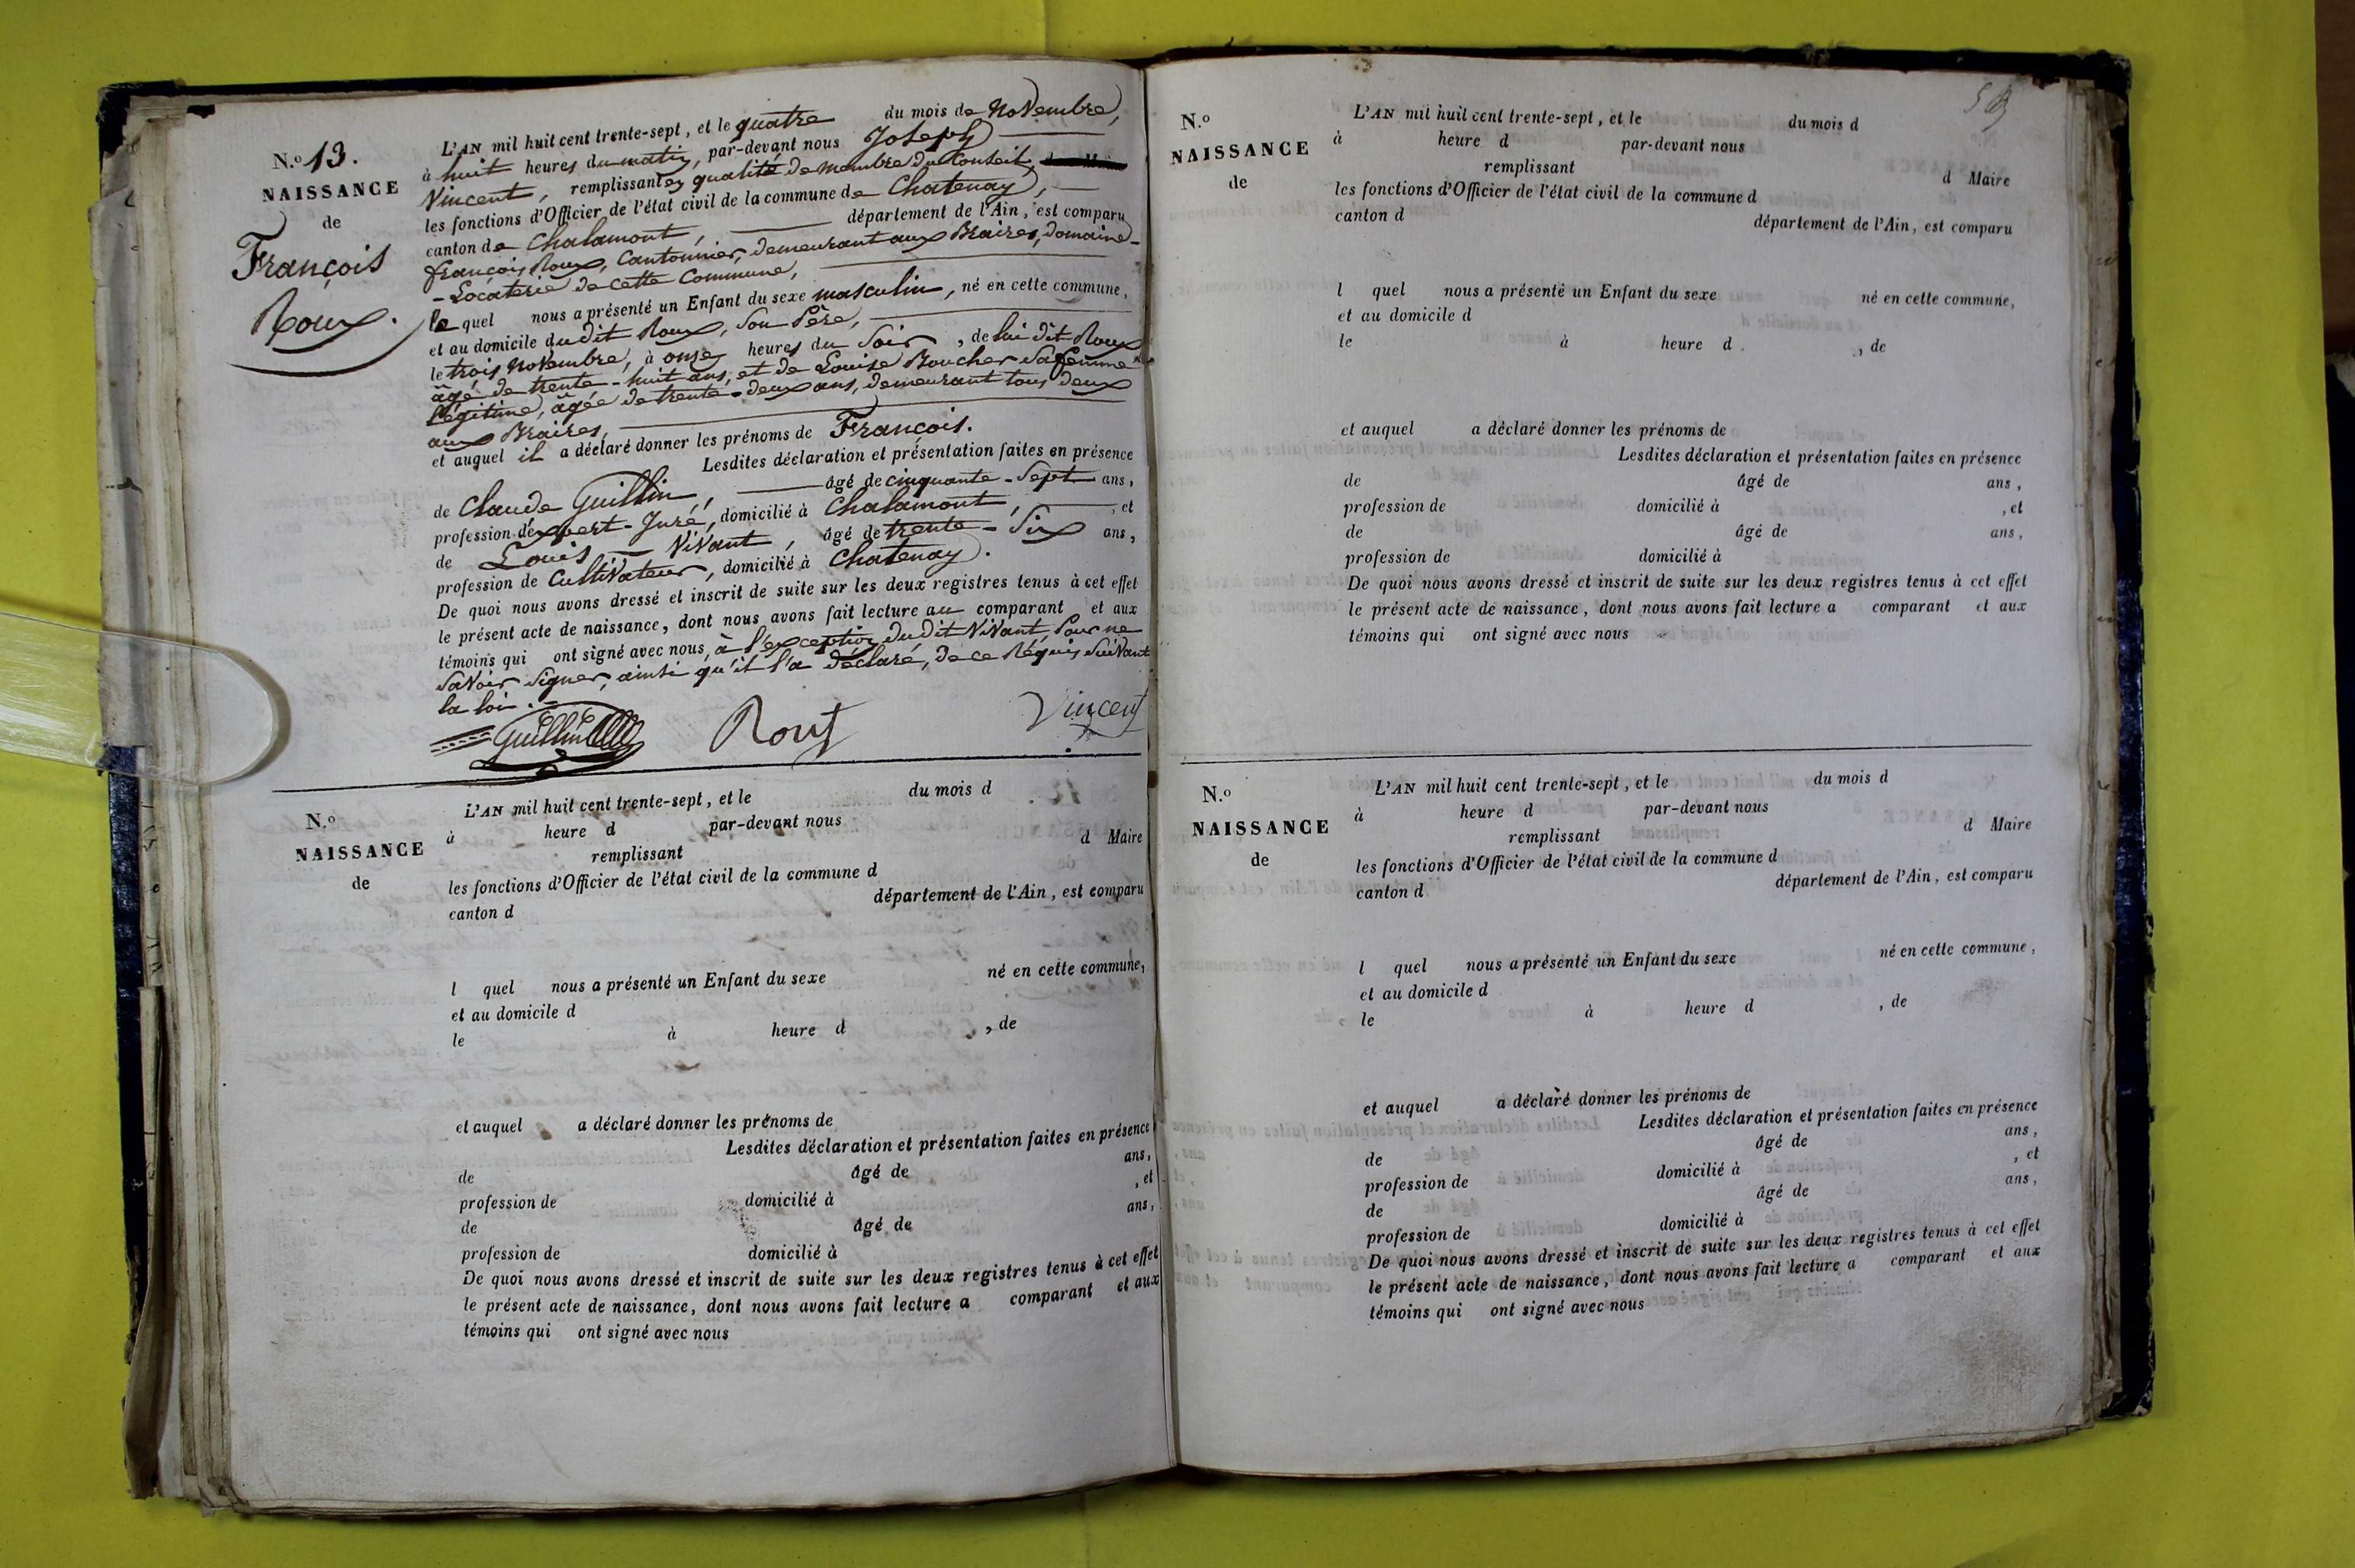 N.o 13.
NAISSANCE
de
François
Roux.
L'AN mil huit cent trente-sept, et le quatre du mois de Novembre,
à huit heures du matin, par-devant nous Joseph
Vincent, remplissant en qualité de membre du Conseil,
les fonctions d'Officier de l'état civil de la commune de Chatenay,
canton de Chalamont, département de l'Ain, est comparu
françois Roux, Cantonnier, demeurant aux Braires, domaine-
-Locaterie de cette Commune,
lequel nous a présenté un Enfant du sexe masculin, né en cette commune,
et au domicile dudit Roux, son Père,
le trois Novembre, à onze heures du Soir, de lui dit Roux
âgé de trente-huit ans, et de Louise Boucher sa femme
légitime, âgée de trente-deux ans, demeurant tous deux
aux Braires,
et auquel il a déclaré donner les prénoms de François.
Lesdites déclaration et présentation faites en présence
de Claude Guillin, âgé de cinquante-Sept ans,
profession d'expert-Juré, domicilié à Chalamont, , et
de Louis Vivant, âgé de trente-Six ans,
profession de Cultivateur, domicilié à Chatenay.
De quoi nous avons dressé et inscrit de suite sur les deux registres tenus à cet effet
le présent acte de naissance, dont nous avons fait lecture au comparant et aux
témoins qui ont signé avec nous, à l'exception dudit Vivant, Pour ne
savoir signer, ainsi qu'il l'a déclaré, de ce Réquis suivant
la loi.
Guillin Roux Vincent
N.o
NAISSANCE
de
L'AN mil huit cent trente-sept, et le du mois d
à heure d par-devant nous
remplissant d Maire
les fonctions d'Officier de l'état civil de la commune d
canton d département de l'Ain, est comparu
l quel nous a présenté un Enfant du sexe né en cette commune,
et au domicile d
le à heure d , de
et auquel a déclaré donner les prénoms de
Lesdites déclaration et présentation faites en présence
de âgé de ans,
profession de domicilié à , et
de âgé de ans,
profession de domicilié à
De quoi nous avons dressé et inscrit de suite sur les deux registres tenus à cet effet
le présent acte de naissance, dont nous avons fait lecture a comparant et aux
témoins qui ont signé avec nous
N.o
NAISSANCE
de
L'AN mil huit cent trente-sept, et le du mois d
à heure d par-devant nous
remplissant d Maire
les fonctions d'Officier de l'état civil de la commune d
canton d département de l'Ain, est comparu
l quel nous a présenté un Enfant du sexe né en cette commune,
et au domicile d
le à heure d , de
et auquel a déclaré donner les prénoms de
Lesdites déclaration et présentation faites en présence
de âgé de ans,
profession de domicilié à , et
de âgé de ans,
profession de domicilié à
De quoi nous avons dressé et inscrit de suite sur les deux registres tenus à cet effet
le présent acte de naissance, dont nous avons fait lecture a comparant et aux
témoins qui ont signé avec nous
N.o
NAISSANCE
de
L'AN mil huit cent trente-sept, et le du mois d
à heure d par-devant nous
remplissant d Maire
les fonctions d'Officier de l'état civil de la commune d
canton d département de l'Ain, est comparu
l quel nous a présenté un Enfant du sexe né en cette commune,
et au domicile d
le à heure d , de
et auquel a déclaré donner les prénoms de
Lesdites déclaration et présentation faites en présence
de âgé de ans,
profession de domicilié à , et
de âgé de ans,
profession de domicilié à
De quoi nous avons dressé et inscrit de suite sur les deux registres tenus à cet effet
le présent acte de naissance, dont nous avons fait lecture a comparant et aux
témoins qui ont signé avec nous